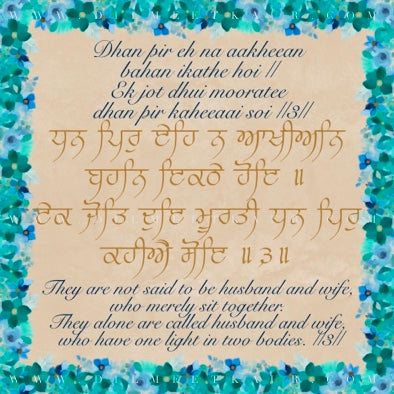 WWW.DILMEETKAIR.COM
Dhan pir eh na aakheean
bahan ikathe hoi ||
Ek jot dhui mooratee
dhan pir kaheeaai soi ||3||
ਧਨ ਪਿਰੁ ਏਹਿ ਨ ਆਖੀਅਨਿ
ਬਹਨਿ ਇਕਠੇ ਹੋਇ ॥
ਏਕ ਜੋਤਿ ਦੁਇ ਮੂਰਤੀ ਧਨ ਪਿਰੁ
ਕਹੀਐ ਸੋਇ ॥੩॥
They are not said to be husband and wife,
who merely sit together.
They alone are called husband and wife,
who have one light in two bodies. ||3||
WWW.DILMEETKAIR.COM